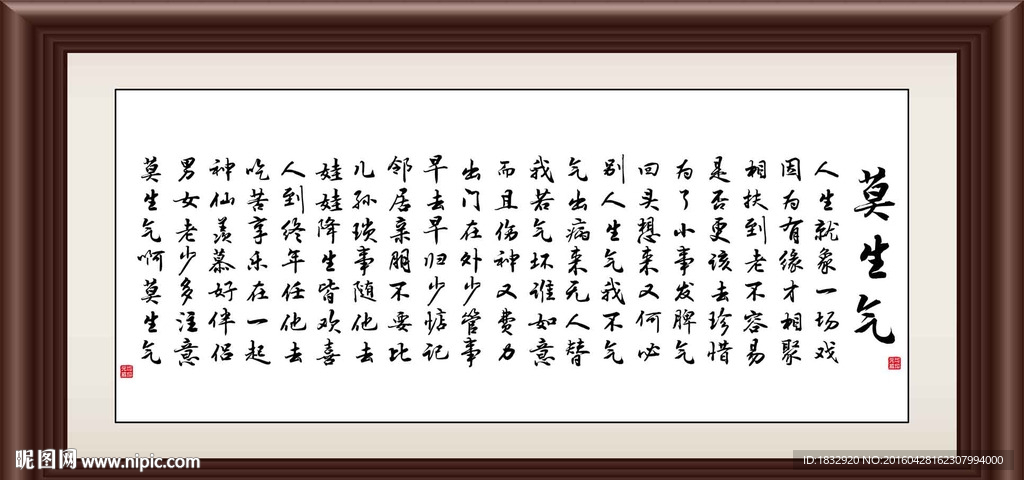 莫生气
人生就象一场戏
因为有缘才相聚
相扶到老不容易
是否更该去珍惜
为了小事发脾气
回头想来又何必
别人生气我不气
气出病来无人替
我若气坏谁如意
而且伤神又费力
出门在外少管事
早去早归少惦记
邻居亲朋不要比
儿孙琐事随他去
娃娃降生皆欢喜
人到终年任他去
吃苦享乐在一起
神仙羡慕好伴侣
男女老少多注意
莫生气啊莫生气
昵图网 www.nipic.com
ID:1832920 NO:20160428162307994000